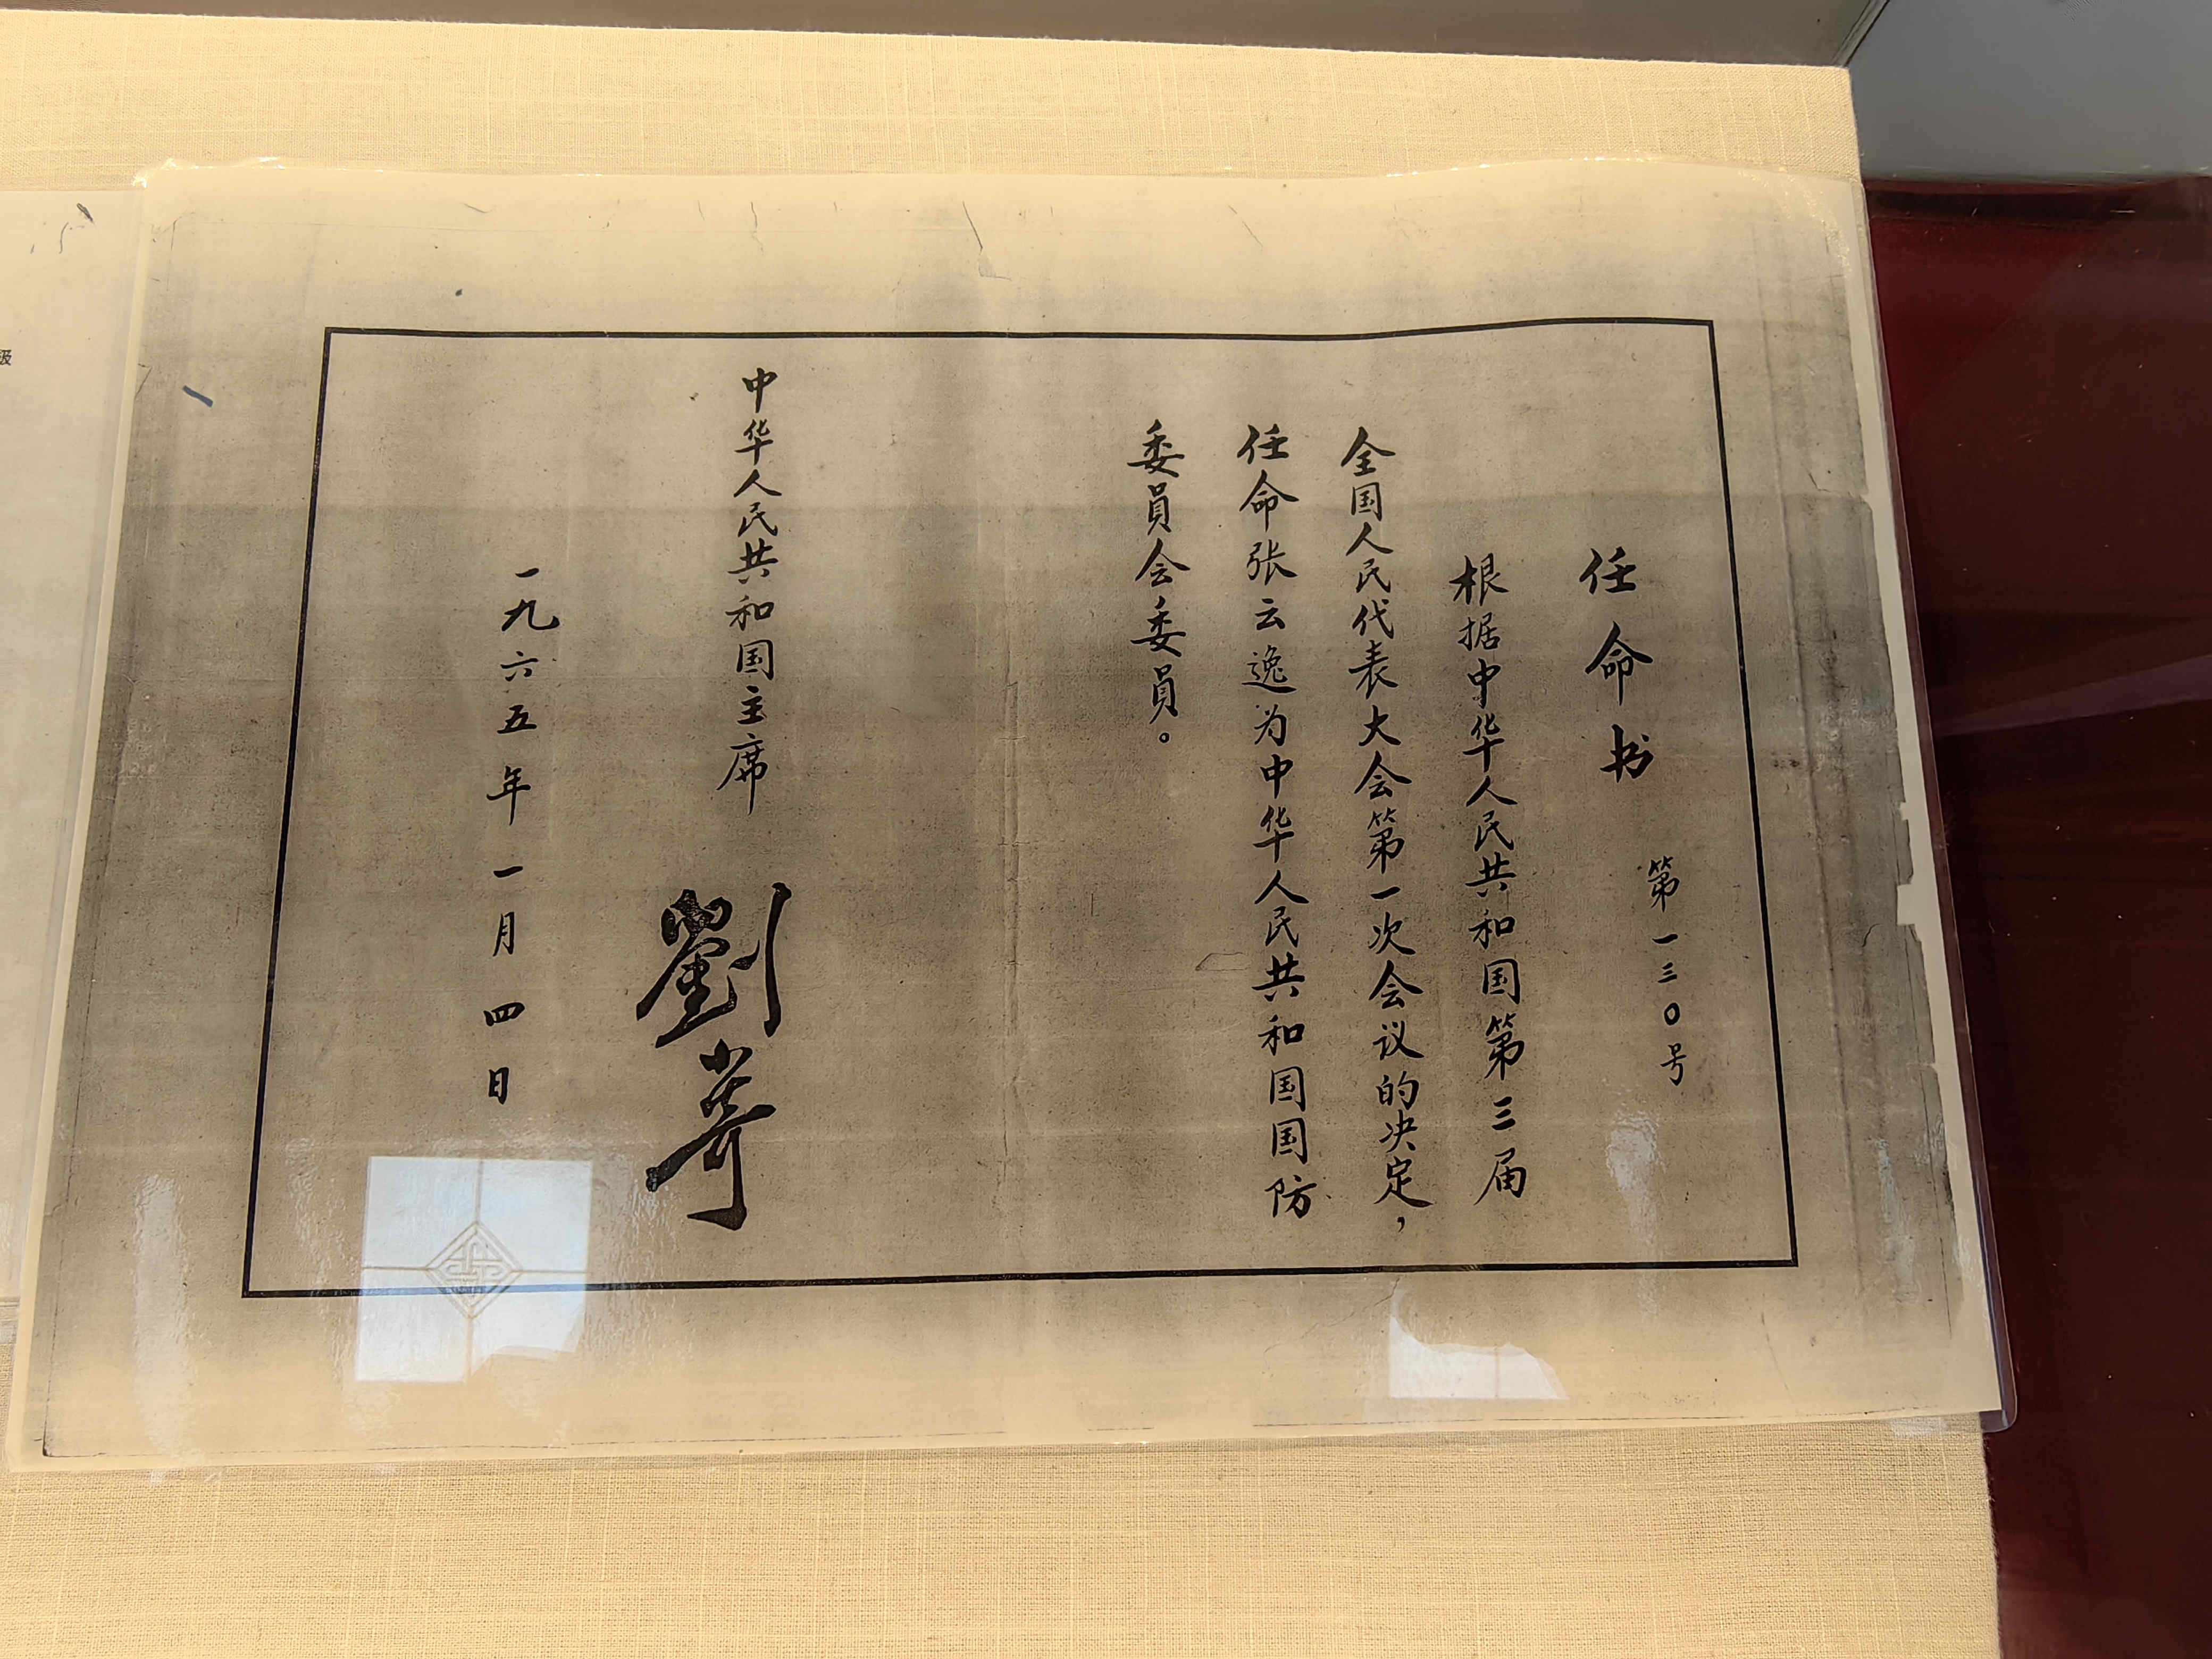 任命书
第一三〇号
根据中华人民共和国第三届
全国人民代表大会第一次会议的决定，
任命张云逸为中华人民共和国国防
委员会委员。
中华人民共和国主席
劉少奇
一九六五年一月四日
级